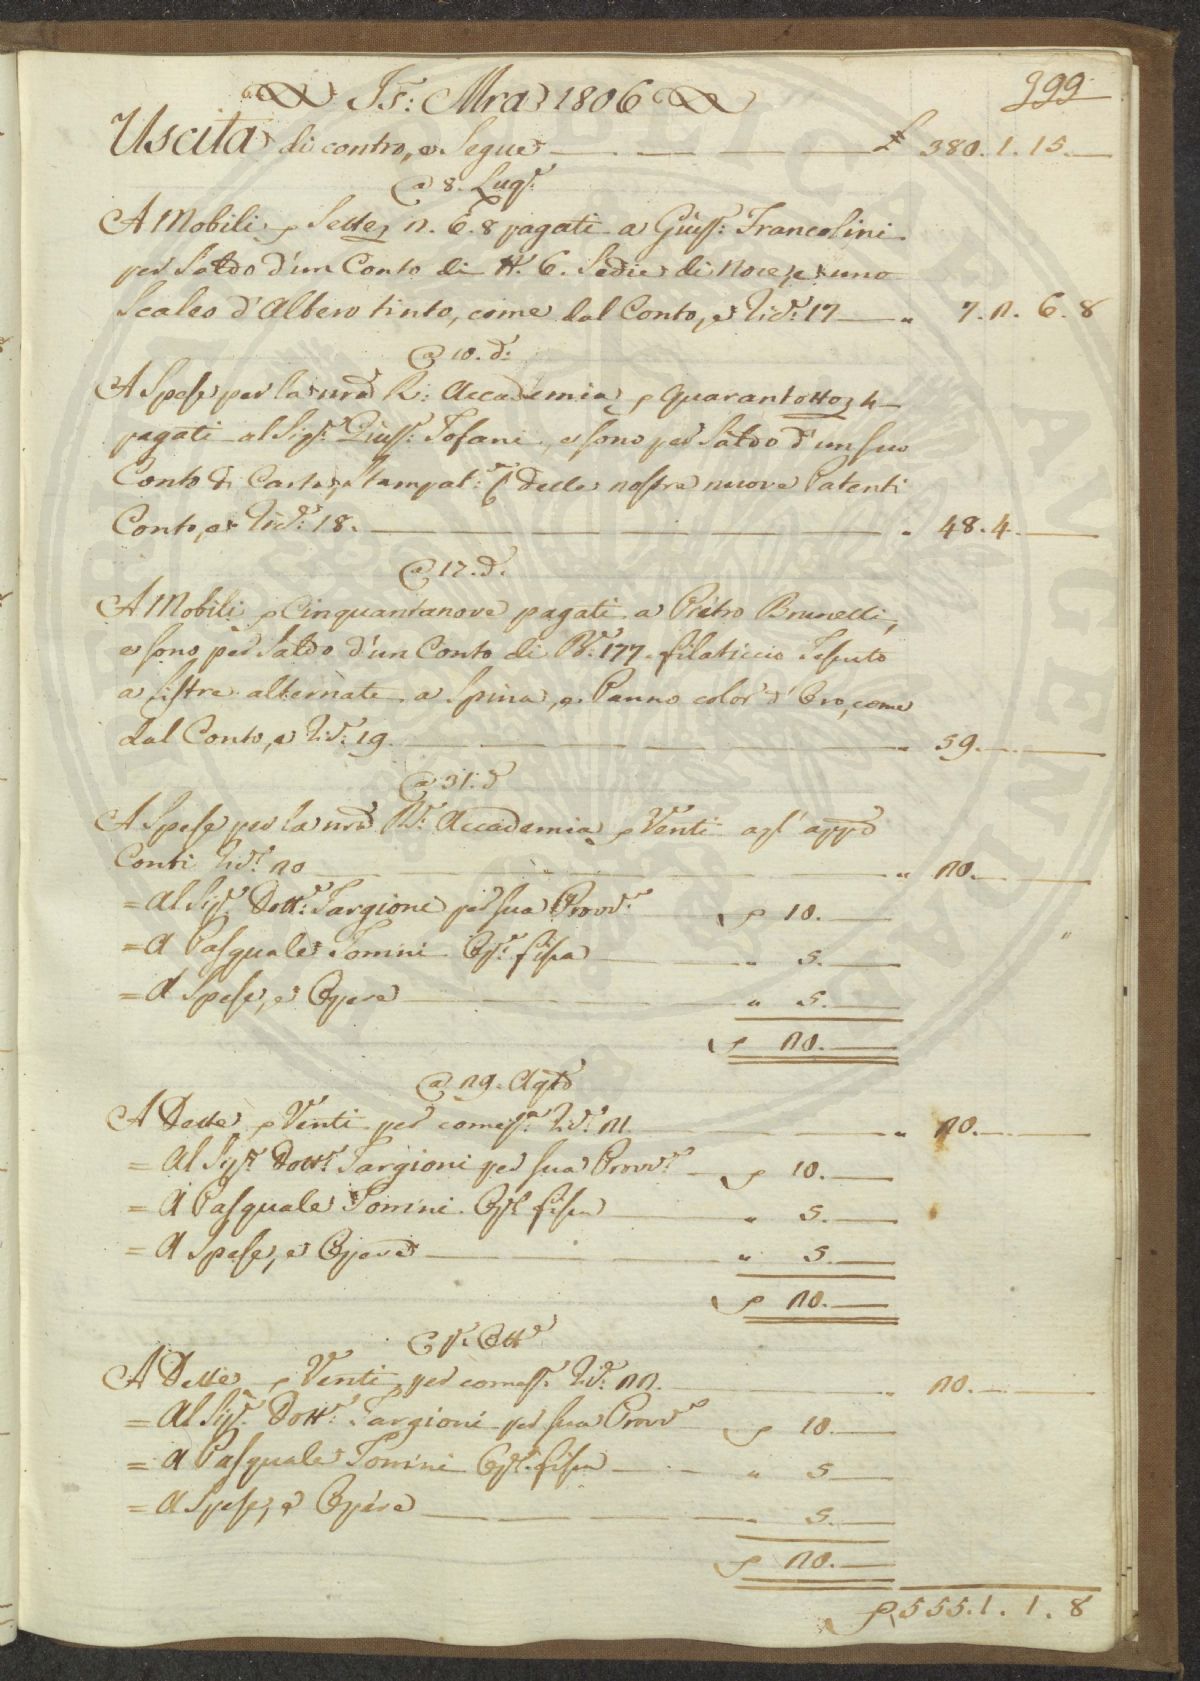 Is: Mra 1806
299
Uscita di contro, e Segue £ 380. 1. 15.
@ 8. Lug.o
A Mobili p Sette, 2. 6. 8 pagati a Giuss: Francolini
per Saldo d'un Conto di N.o 6. Sedie di Noce, e uno
Scaleo d'Albero tinto, come dal Conto, e Ric.a 17 " 7. 2. 6. 8
@ 10. d.o
A Spese per la nra R: Accademia p Quarantotto, 4
pagati al Sig.r Giuss: Tofani, e sono per Saldo d'un suo
Conto di Carta, Stampat.e delle nostre nuove Patenti
Conto, e Ric.a 18. " 48. 4.
@ 17. d.
A Mobili p Cinquantanove pagati a Pietro Brunelli,
e sono per Saldo d'un Conto di B.a 177. filaticcio Tessuto
a listre alternate a Spina, e Panno color d'Oro, come
dal Conto, e Ric.a 19. " 59.
@ 31. d
A Spese per la nra R. Accademia p Venti agl' appo
Conti Ric.a 20 " 20.
= Al Sig.r Dott.r Targioni per sua Provv.e p 10.
= A Pasquale Tonini Op.e fissa " 5.
= A Spese, e Opere " 5.
p 20.
@ 29. Agto
A Dette p Venti per come s.a Ric.a 21. " 20.
= Al Sig.r Dott.r Targioni per sua Provv.e p 10.
= A Pasquale Tonini Op.e fissa " 5.
= A Spese, e Opere " 5.
p 20.
@ p.o Ott.e
A Dette p Venti per come s. Ric.a 22. " 20.
= Al Sig.r Dott.r Targioni per sua Provv.e p 10.
= A Pasquale Tonini Op.e fissa " 5
= A Spese, e Opere " 5.
p 20.
p 555. 1. 1. 8